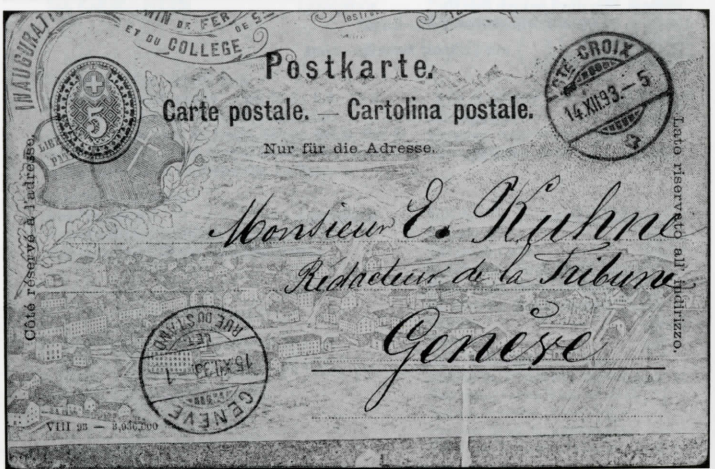 INAUGURATION
MIN DE FER DE S
ET DU COLLEGE
5
Postkarte.
Carte postale. — Cartolina postale.
Nur für die Adresse.
STE CROIX
14.XII.93.– 5
Côté réservé à l'adresse.
Lato riservato all' indirizzo.
Monsieur E. Kuhne
Rédacteur de la Tribune
Genève
RUE DU STAND
LET.
15.XII.93 – 1
GENÈVE
VIII 93 —